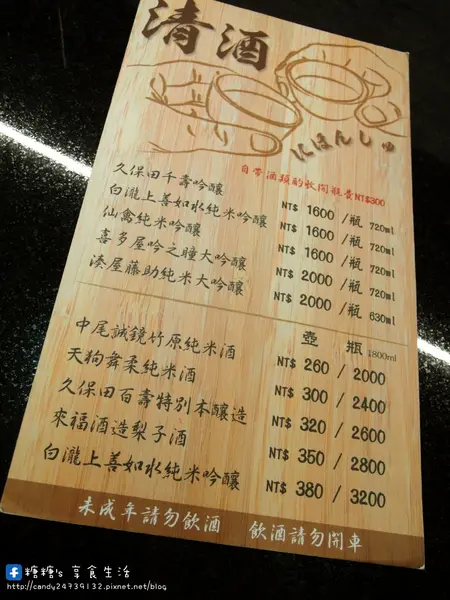 清酒
にほんしゅ
自帶酒類酌收開瓶費NT$300
久保田千壽吟釀 NT$ 1600 /瓶 720ml
白瀧上善如水純米吟釀 NT$ 1600 /瓶 720ml
仙禽純米吟釀 NT$ 1600 /瓶 720ml
喜多屋吟之瞳大吟釀 NT$ 2000 /瓶 720ml
湊屋藤助純米大吟釀 NT$ 2000 /瓶 630ml
壺 瓶1800ml
中尾誠鏡竹原純米酒 NT$ 260 / 2000
天狗舞柔純米酒 NT$ 300 / 2400
久保田百壽特別本釀造 NT$ 320 / 2600
來福酒造梨子酒 NT$ 350 / 2800
白瀧上善如水純米吟釀 NT$ 380 / 3200
未成年請勿飲酒 飲酒請勿開車
糖糖's 享食生活
http://candy24739132.pixnet.net/blog